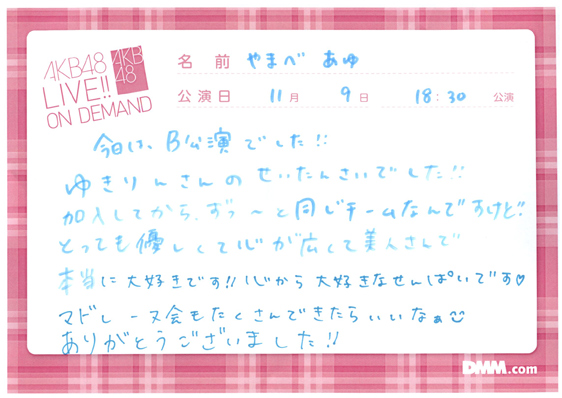 AKB48
LIVE!!
ON DEMAND
AKB
48
名前 やまべ あゆ
公演日 11月 9日 18:30 公演
今日は、B公演でした!!
ゆきりんさんのせいたんさいでした!!
加入してから、ずっ〜と同じチームなんですけど!!
とっても優しくて心が広くて美人さんで
本当に大好きです!!心から大好きなせんぱいです♡
マドレーヌ会もたくさんできたらいいなぁ
ありがとうございました!!
DMM.com